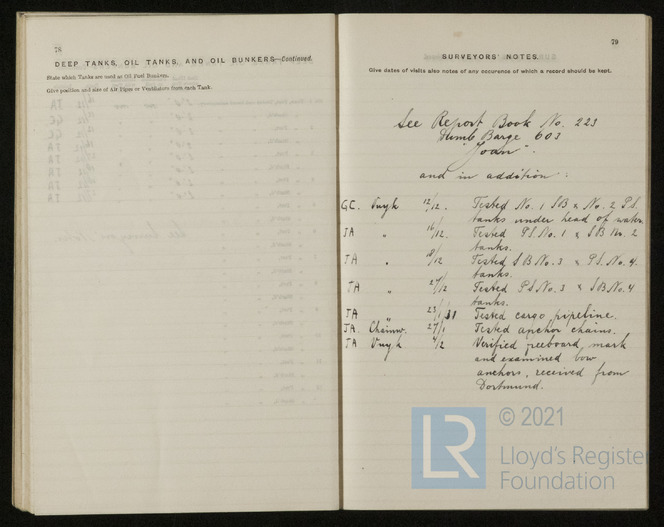 78
DEEP TANKS, OIL TANKS, AND OIL BUNKERS—Continued.
State which Tanks are used as Oil Fuel Bunkers.
Give position and size of Air Pipes or Ventilators from each Tank.
79
SURVEYORS' NOTES.
Give dates of visits also notes of any occurence of which a record should be kept.
See Report Book No. 223
Dumb Barge 603
"Joan".
and in addition:
GC. Vuyk 12/12. Tested No. 1 SB & No. 2 P.S.
tanks under head of water.
JA " 16/12. Tested P.S. No. 1 & SB No. 2
tanks.
JA " 18/12 Tested SB No. 3 & P.S. No. 4.
tanks.
JA " 27/12 Tested P.S No. 3 & SB No. 4
tanks.
JA " 23/1/31 Tested cargo pipeline.
JA. Chainw. 27/1 Tested anchor chains.
JA Vuyk 4/2 Verified freeboard mark
and examined bow
anchors, received from
Dortmund.
LR
© 2021
Lloyd's Register
Foundation